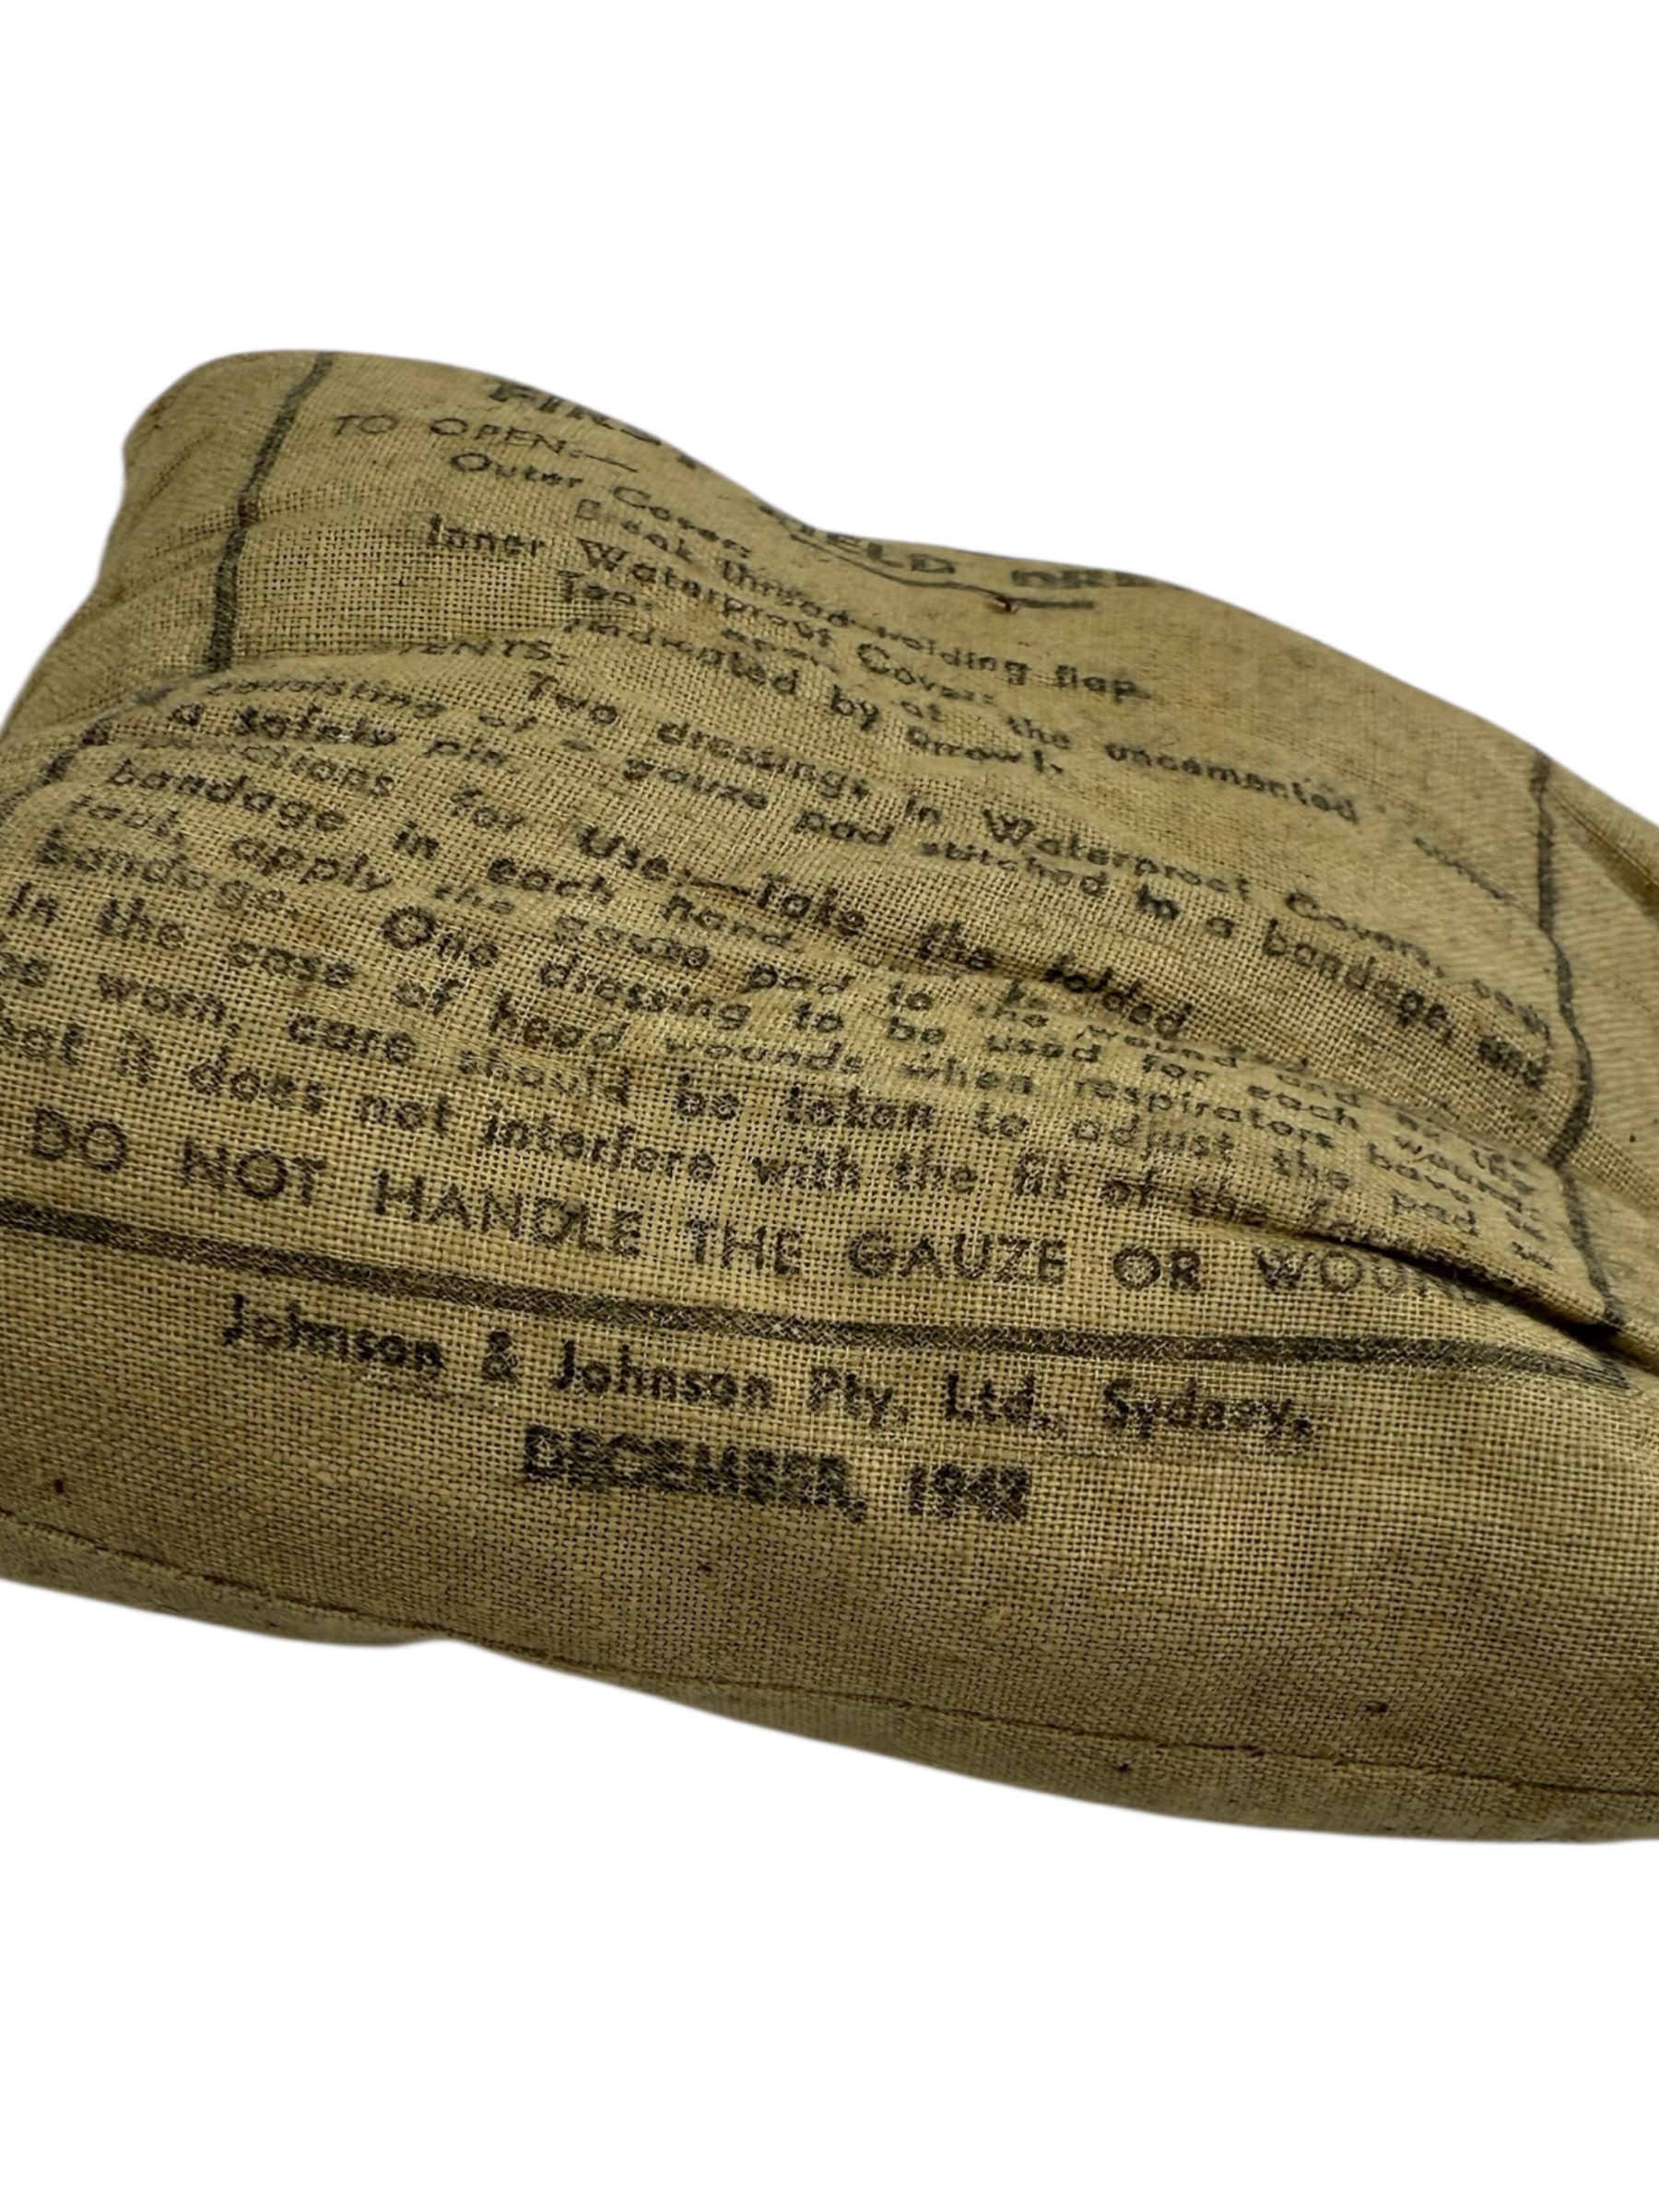 FIELD DRE
TO OPEN:—
Outer Cover:
Break thread holding flap.
Inner Waterproof Cover:
Tear apart at the uncemented
indicated by arrow).
ENTS: Two dressings in Waterproof Covers, each
consisting of a gauze pad stitched to a bandage, and
a safety pin.
ctions for Use.—Take the folded
bandage in each hand
taut, apply the gauze pad to the wound and
bandage. One dressing to be used for each wound.
In the case of head wounds when respirators have to
be worn, care should be taken to adjust the pad so
hat it does not interfere with the fit of the face
DO NOT HANDLE THE GAUZE OR WOUND
Johnson & Johnson Pty. Ltd., Sydney.
DECEMBER, 1942